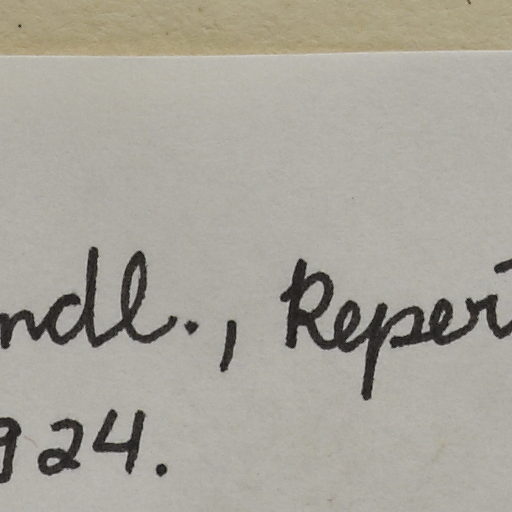 ndl., Repert
924.